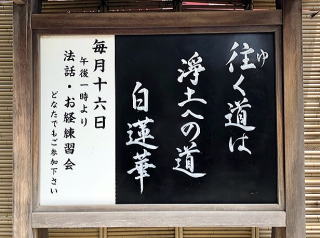 往く道は
ゆ
浄土への道
白蓮華
毎月十六日
午後一時より
法話・お経練習会
どなたでもご参加下さい